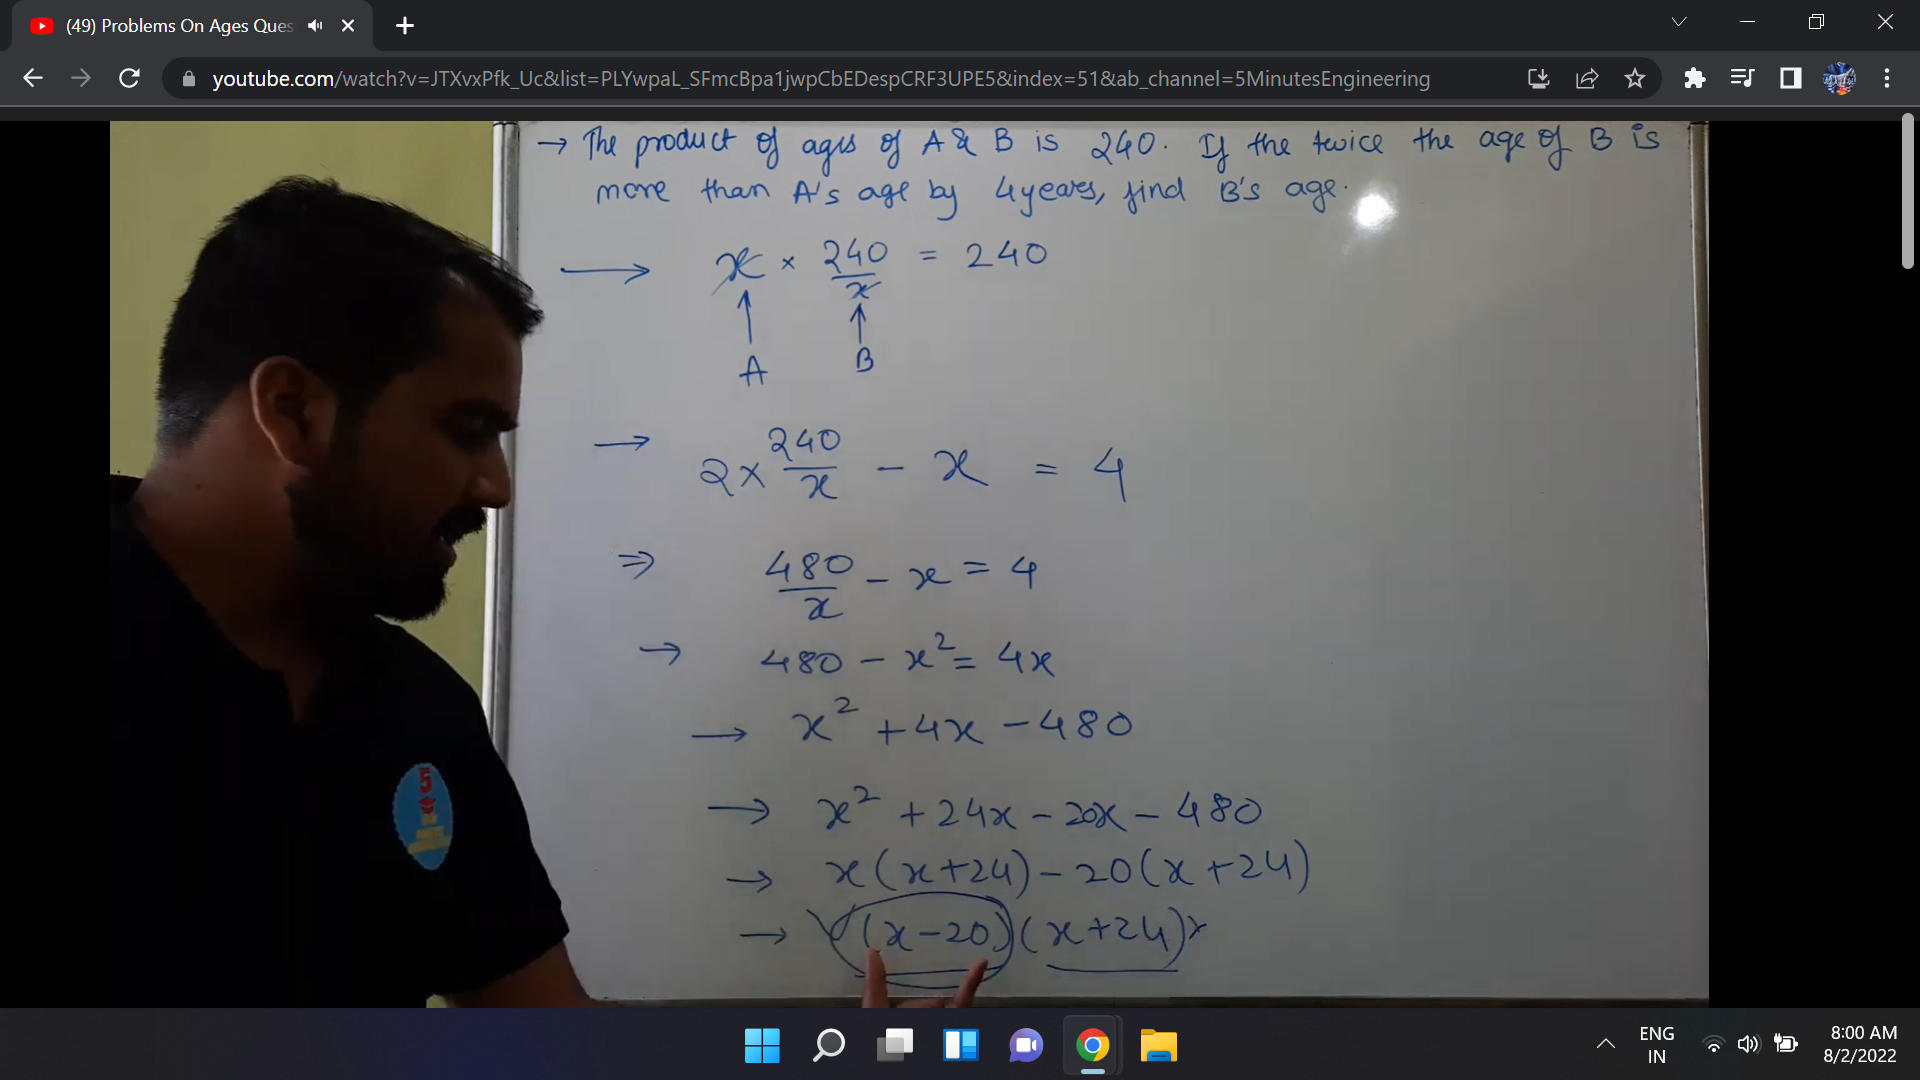 (49) Problems On Ages Ques
youtube.com/watch?v=JTXvxPfk_Uc&list=PLYwpaL_SFmcBpa1jwpCbEDespCRF3UPE5&index=51&ab_channel=5MinutesEngineering
→ The product of ages of A & B is 240. If the twice the age of B is
more than A's age by 4 years, find B's age.
→ x × 240/x = 240
A B
→ 2 × 240/x - x = 4
⇒ 480/x - x = 4
→ 480 - x² = 4x
→ x² + 4x - 480
→ x² + 24x - 20x - 480
→ x(x+24) - 20(x+24)
→ (x-20)(x+24)×
5
ENG
IN
8:00 AM
8/2/2022